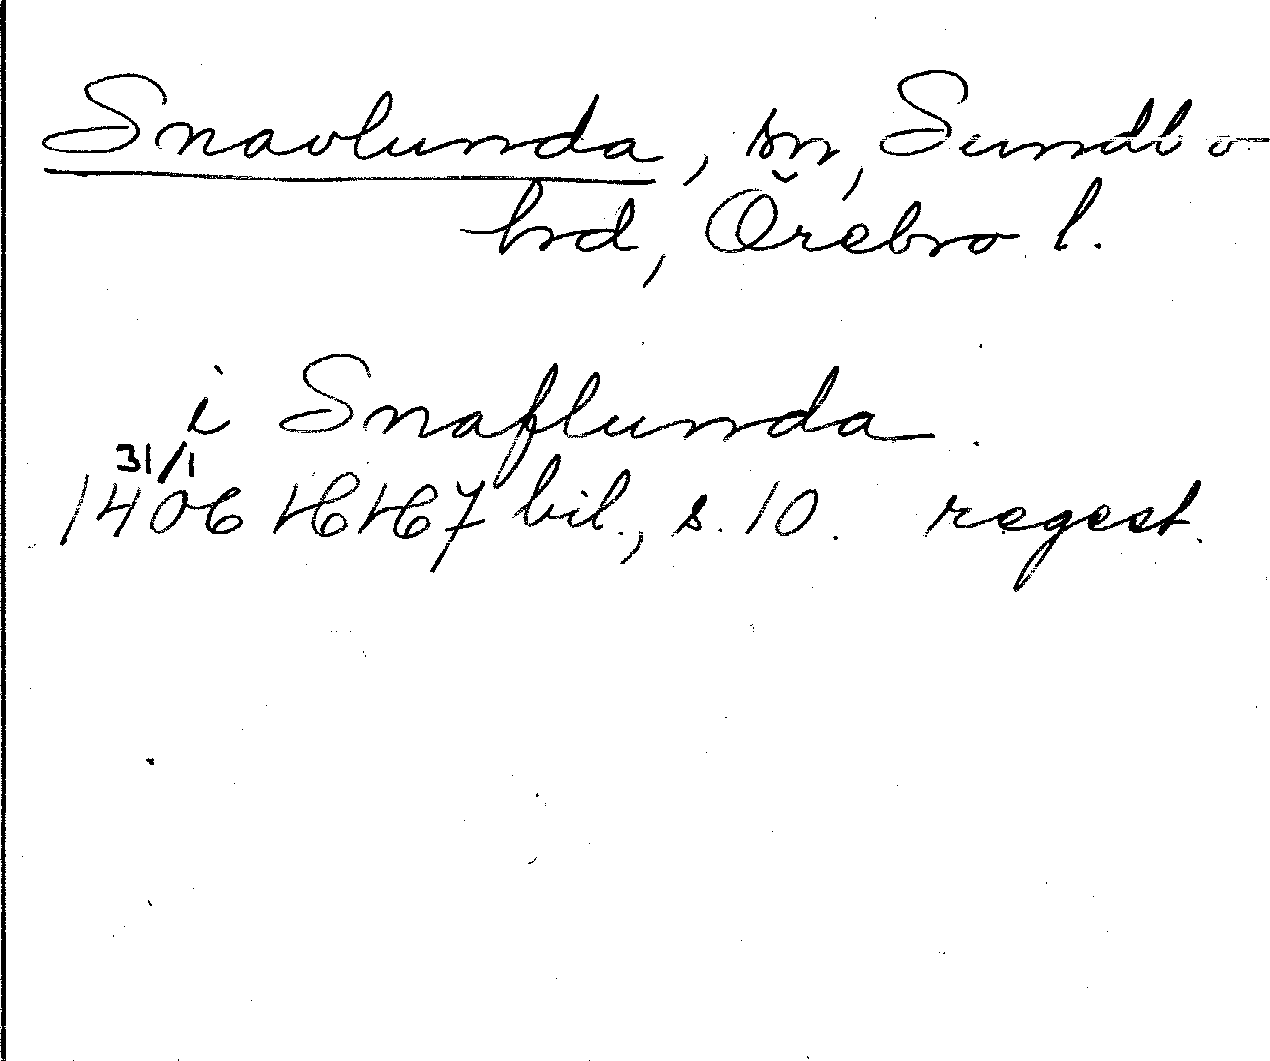 Snavlunda, sn, Sundbo
hrd, Örebro l.
i Snaflunda.
31/1
1406 HH 7 bil., s. 10. regest.